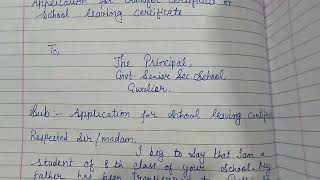 Application for transfer certificate or
School leaving certificate
To,
The Principal,
Govt Senior Sec School,
Gwalior.
Sub :- Application for School leaving certificate
Respected Sir/madam,
I beg to say that I am a
student of 8th class of your School. My
father has been